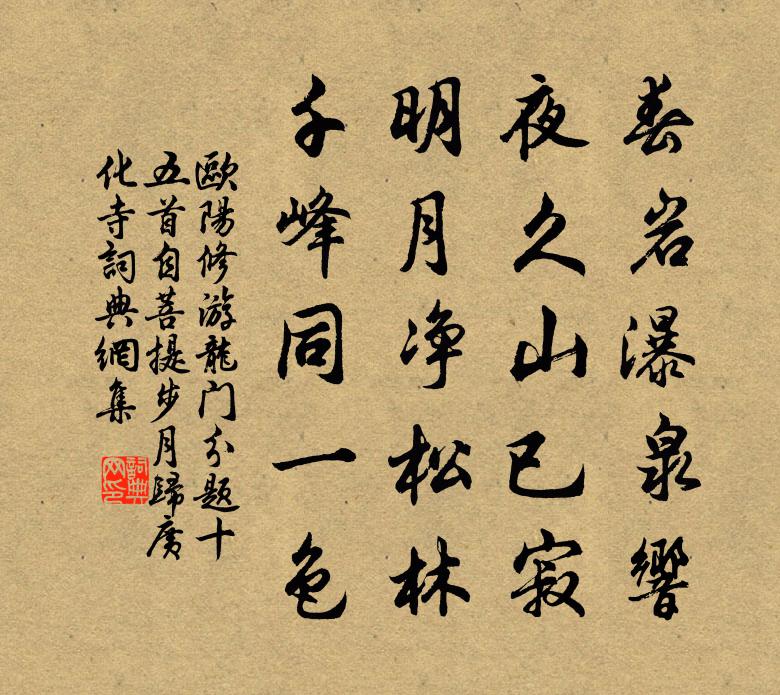 春岩瀑泉響
夜久山已寂
明月净松林
千峰同一色
歐陽修游龍门分题十
五首自菩提步月歸廣
化寺詞典網集
詞典
网印